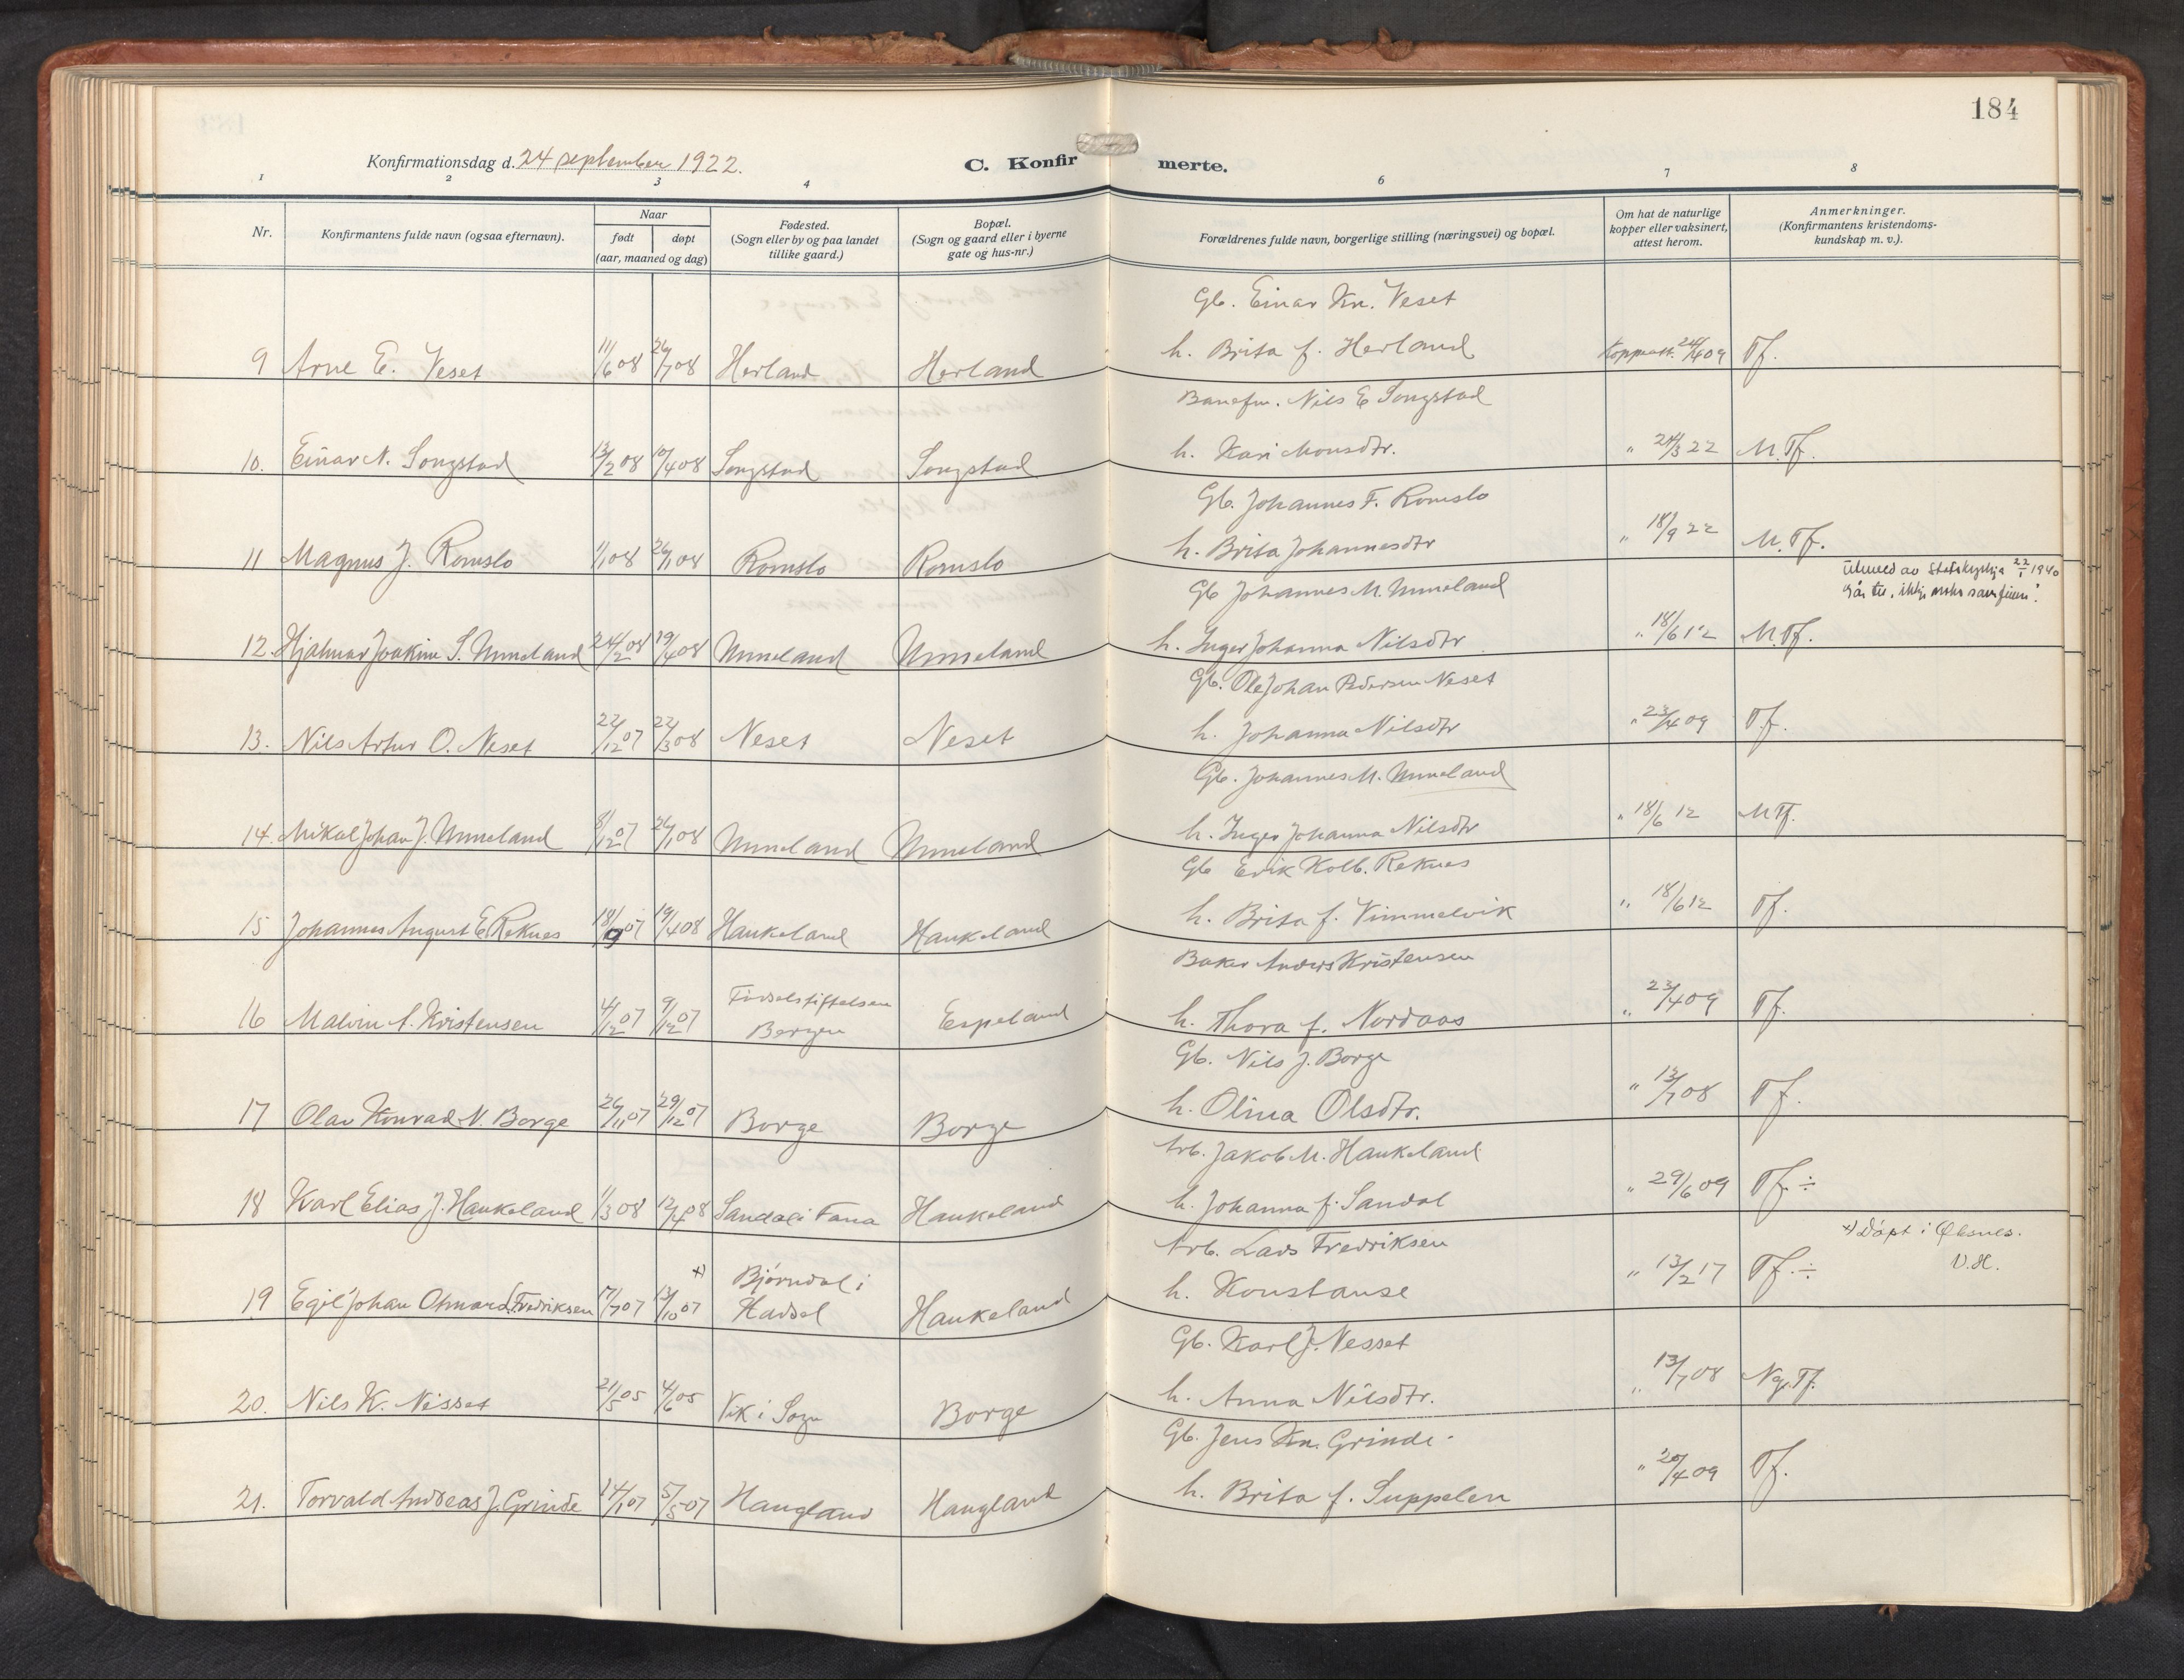 184
Konfirmationsdag d. 24 september 1922.
C. Konfirmerte.
1 2 3 4 6 7 8
Nr.
Konfirmantens fulde navn (ogsaa efternavn).
Naar
født døpt
(aar, maaned og dag)
Fødested.
(Sogn eller by og paa landet
tillike gaard.)
Bopæl.
(Sogn og gaard eller i byerne
gate og hus-nr.)
Forældrenes fulde navn, borgerlige stilling (næringsvei) og bopæl.
Om hat de naturlige
kopper eller vaksinert,
attest herom.
Anmerkninger.
(Konfirmantens kristendoms-
kundskap m. v.).
Gb. Einar Kn. Veset
9 Arne E. Veset 11/6 08 26/7 08 Herland Herland h. Brita f. Herland Koppeatt. 24/4 09 Tf.
Banefm. Nils E Songstad
10. Einar N. Songstad 13/2 08 10/4 08 Songstad Songstad h. Kari Monsdtr. " 24/3 22 M.Tf.
Gb. Johannes F. Romslo
11 Magnus J. Romslo 1/1 08 26/1 08 Romslo Romslo h. Brita Johannesdtr " 18/9 22 M.Tf.
Utmeld av Statskyrkja 22/1 1940
Gb Johannes M. Unneland
12. Hjalmar Joakim S. Unneland 24/2 08 19/4 08 Unneland Unneland h. Inger Johanna Nilsdtr " 18/6 12 M.Tf.
Gb. Ole Johan Pedersen Neset
13. Nils Artur O. Neset 22/12 07 22/3 08 Neset Neset h. Johanna Nilsdtr " 23/4 09 Tf.
Gb. Johannes M. Unneland
14. Mikal Johan J. Unneland 8/12 07 26/1 08 Unneland Unneland h. Inger Johanna Nilsdtr " 18/6 12 M Tf.
Gb Erik Kolb. Reknes
15 Johannes August E. Reknes 18/9 07 19/4 08 Haukeland Haukeland h. Brita f. Vimmelvik " 18/6 12 Tf.
Baker Anders Kristensen
16 Malvin A. Kristensen 4/12 07 9/12 07 Fødselstiftelsen
Bergen Espeland h. Thora f. Nordaas " 23/4 09 Tf.
Gb. Nils J. Borge
17 Olav Konrad N. Borge 26/11 07 29/12 07 Borge Borge h. Olina Olsdtr. " 13/7 08 Tf.
Arb. Jakob M. Haukeland
18 Karl Elias J. Haukeland 1/3 08 12/4 08 Sandal i Fana Haukeland h. Johanna f. Sandal " 29/6 09 Tf. ÷
Arb. Lars Fredriksen
x) Døpt i Øksnes.
V.H.
19 Egil Johan Otmar L. Fredriksen 17/7 07 x) 13/10 07 Bjørndal i
Hadsel Haukeland h. Konstanse " 13/2 17 Tf. ÷
Gb. Karl J. Nesset
20. Nils K. Nesset 21/5 05 4/6 05 Vik i Sogn Borge h. Anna Nilsdtr. " 13/7 08 Ng. Tf.
Gb. Jens Kn. Grinde
21. Torvald Andreas J. Grinde 14/1 07 5/5 07 Haugland Haugland h. Brita f. Suppelen " 20/4 09 Tf.